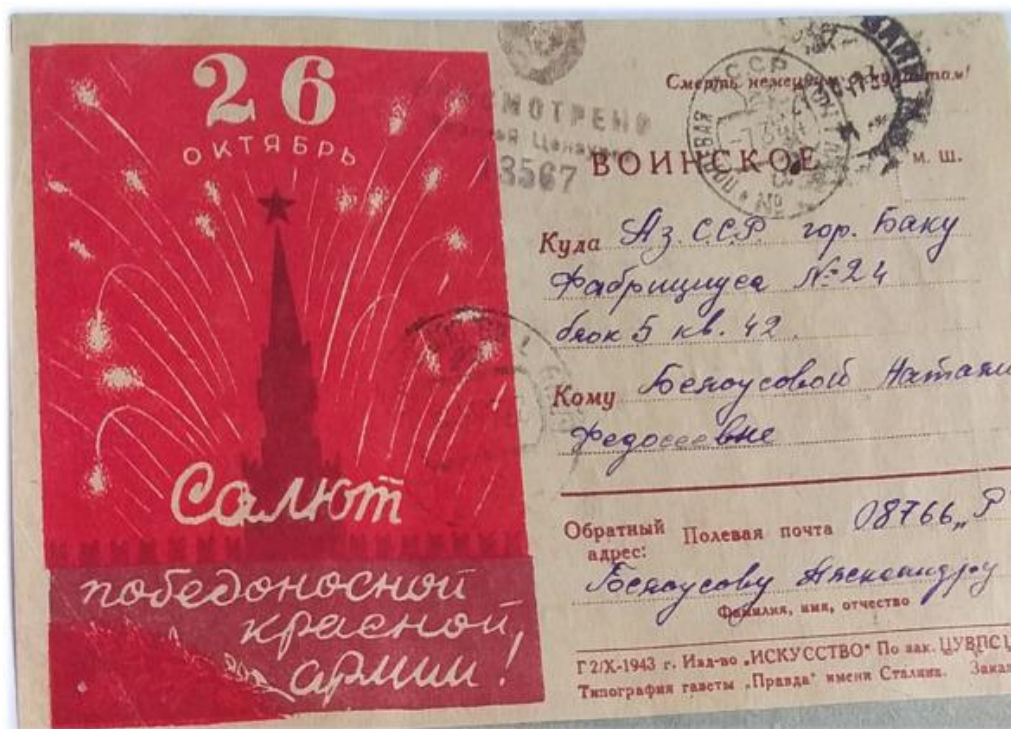 26
ОКТЯБРЬ
Салют
победоносной
красной
армии!
ПРОСМОТРЕНО
Военной Цензурой
13567
Смерть немецким оккупантам!
ВОИНСКОЕ
м. ш.
СССР
ПОЛЕВАЯ
Куда Аз. ССР гор. Баку
Фабрициуса № 24
блок 5 кв. 42.
Кому Белоусовой Натали
Федосеевне
Обратный адрес: Полевая почта 08766 „Р
Белоусову Александру
Фамилия, имя, отчество
Г 2/X-1943 г. Изд-во „ИСКУССТВО" По зак. ЦУВПС
Типография газеты „Правда" имени Сталина. Зака